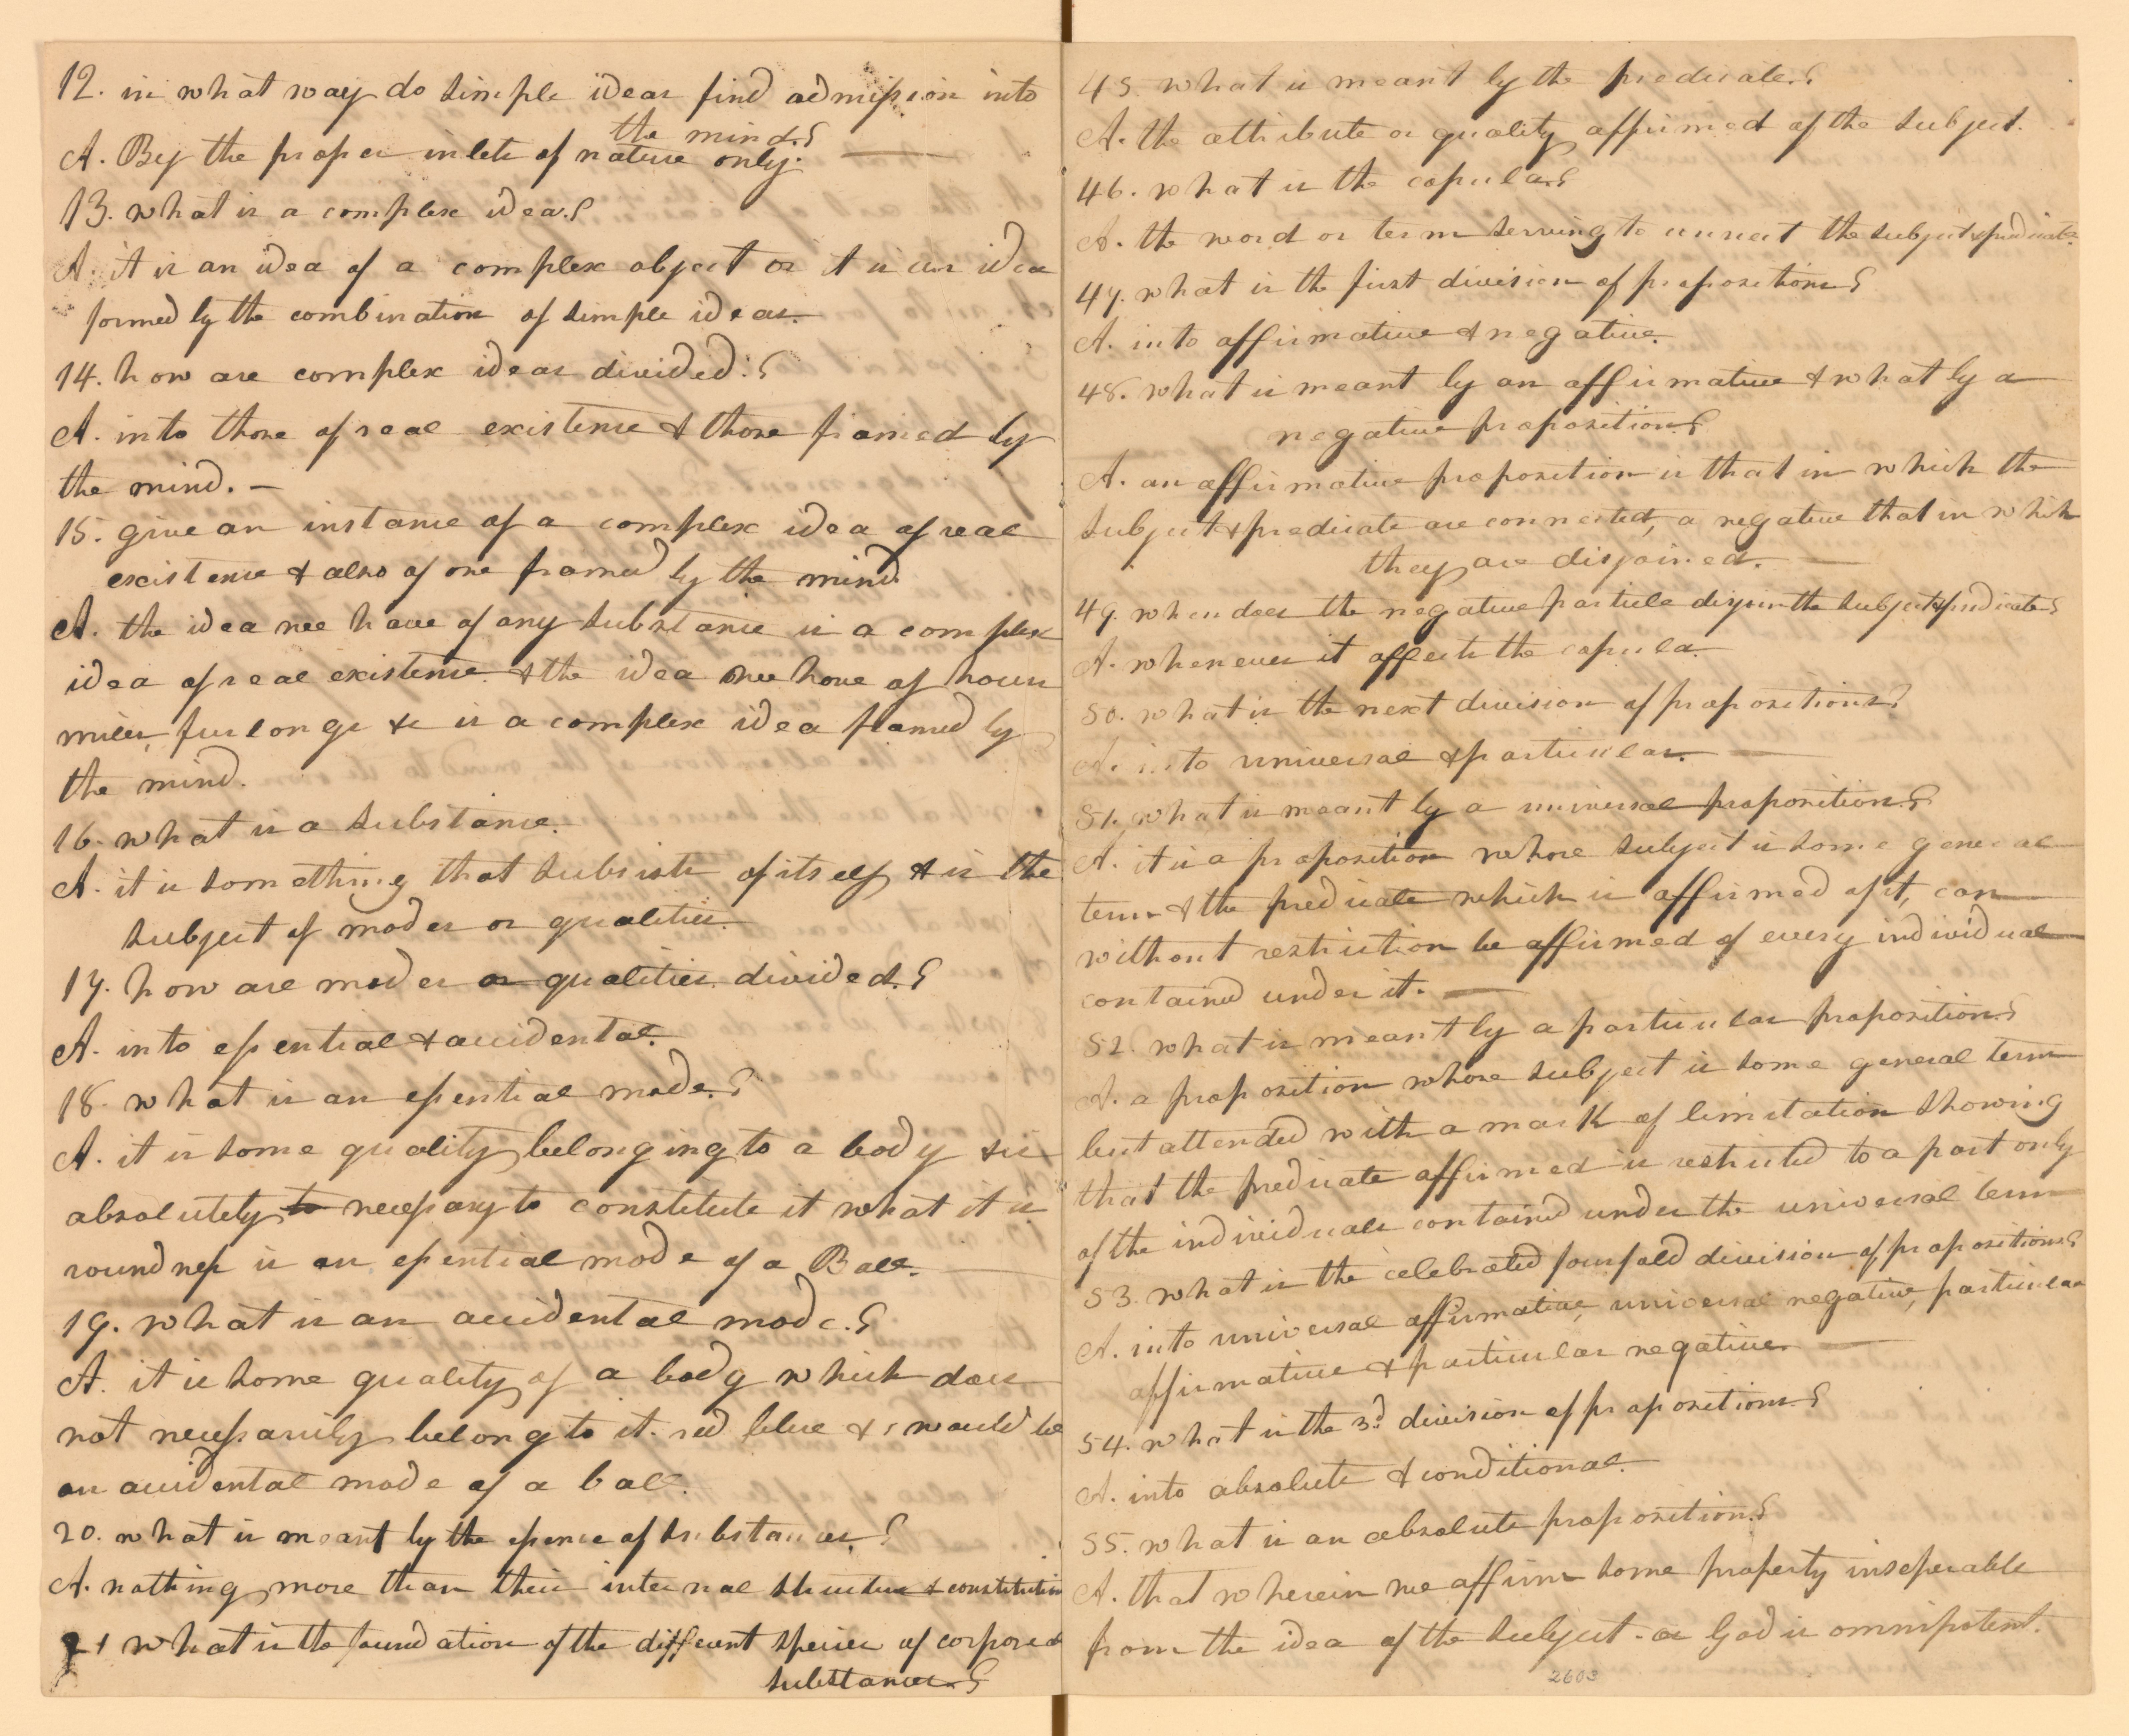 12. in what way do simple ideas find admission into
the mind.?
A. By the proper inlets of nature only.
13. what is a complex idea.?
A. it is an idea of a complex object or it is an idea
formed by the combination of simple ideas.
14. how are complex ideas divided.?
A. into those of real existence & those framed by
the mind. —
15. give an instance of a complex idea of real
existence & also of one framed by the mind
A. the idea we have of any substance is a complex
idea of real existence & the idea we have of hours
miles, furlongs &c is a complex idea framed by
the mind.
16. what is a substance.
A. it is something that subsists of itself & is the
subject of modes or qualities.
17. how are modes or qualities divided.?
A. into essential & accidental.
18. what is an essential mode.?
A. it is some quality belonging to a body & is
absolutely to necessary to constitute it what it is
roundness is an essential mode of a Ball.
19. what is an accidental mode.?
A. it is some quality of a body which does
not necessarily belong to it. red blue &c would be
an accidental mode of a ball.
20. what is meant by the essence of substances.?
A. nothing more than their internal structure & constitution
21 what is the foundation of the different species of corporeal
substances.?
45. what is meant by the predicate.?
A. the attribute or quality affirmed of the subject.
46. what is the copula.?
A. the word or term serving to connect the subject & predicate.
47. what is the first division of propositions?
A. into affirmative & negative.
48. what is meant by an affirmative & what by a
negative proposition.?
A. an affirmative proposition is that in which the
subject & predicate are connected, a negative that in which
they are disjoined.
49. when does the negative particle disjoin the subject & predicate?
A. whenever it affects the copula.
50. what is the next division of propositions?
A. into universal & particular.
51. what is meant by a universal proposition.?
A. it is a proposition whose subject is some general
term & the predicate which is affirmed of it, can
without restriction be affirmed of every individual
contained under it. —
52. what is meant by a particular proposition?
A. a proposition whose subject is some general term
but attended with a mark of limitation showing
that the predicate affirmed is restricted to a part only
of the individuals contained under the universal term
53. what is the celebrated fourfold division of propositions?
A. into universal affirmative, universal negative, particular
affirmative & particular negative.
54. what is the 3d division of propositions.?
A. into absolute & conditional.
55. what is an absolute proposition.?
A. that wherein we affirm some property inseperable
from the idea of the subject - as God is omnipotent.
2603